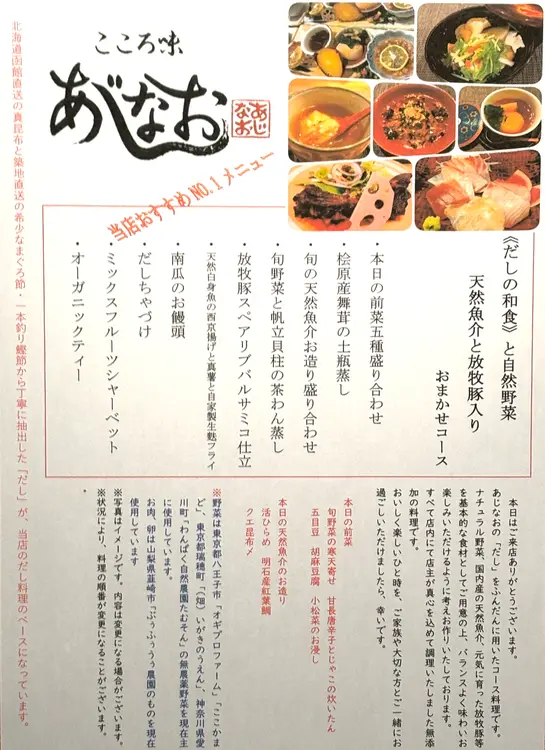 こころ味
あじなお
あじ
なお
当店おすすめNO.1メニュー
《だしの和食》と自然野菜
天然魚介と放牧豚入り
おまかせコース
・本日の前菜五種盛り合わせ
・桧原産舞茸の土瓶蒸し
・旬の天然魚介お造り盛り合わせ
・旬野菜と帆立貝柱の茶わん蒸し
・放牧豚スペアリブバルサミコ仕立
・天然白身魚の西京揚げと真薯と自家製生麩フライ
・南瓜のお饅頭
・だしちゃづけ
・ミックスフルーツシャーベット
・オーガニックティー
本日はご来店ありがとうございます。
あじなおの「だし」をふんだんに用いたコース料理です。
ナチュラル野菜、国内産の天然魚介、元気に育った放牧豚等
を基本的な食材としてご用意の上、バランスよく味わいお
楽しみいただけるように考えお作りいたしております。
すべて店内にて店主が真心を込めて調理いたしました無添
加の料理です。
おいしく楽しいひと時を、ご家族や大切な方とご一緒にお
過ごしいただけましたら、幸いです。
本日の前菜
旬野菜の寒天寄せ 甘長唐辛子とじゃこの炊いたん
五目豆 胡麻豆腐 小松菜のお浸し
本日の天然魚介のお造り
活ひらめ 明石産紅葉鯛
クエ昆布〆
※野菜は東京都八王子市「オギプロファーム」「ここかま
ど」、東京都瑞穂町「(畑)いがきのうえん」、神奈川県愛
川町「わんぱく自然農園たむそん」の無農薬野菜を現在主
に使用しています。
お肉、卵は山梨県韮崎市「ぶぅふぅうぅ農園のものを現在
使用しています
※写真はイメージです。内容は変更になる場合がございます。
※状況により、料理の順番が変更になることがございます。
北海道函館直送の真昆布と築地直送の希少なまぐろ節・一本釣り鰹節から丁寧に抽出した「だし」が、当店のだし料理のベースになっています。